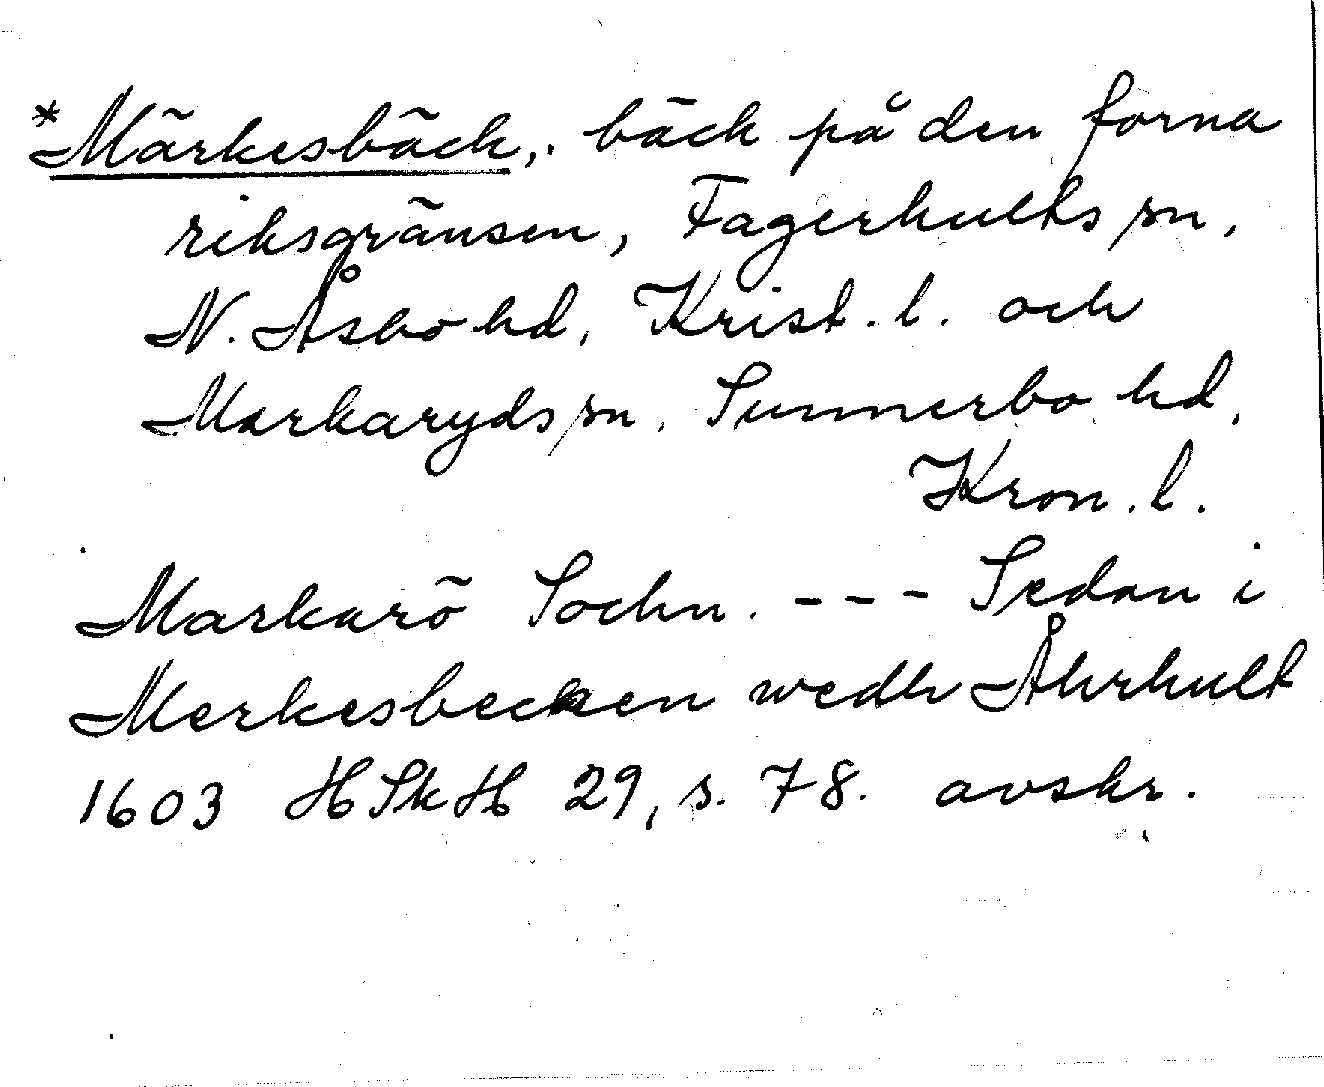 *Märkesbäck, bäck på den forna
riksgränsen, Fagerhults sn,
N. Åsbo hd, Krist. l. och
Markaryds sn, Sunnerbo hd,
Kron. l.
Markarö Sochn. --- Sedan i
Merkesbecken wedh Åhrhult
1603 HSkH 29, s. 78. avskr.